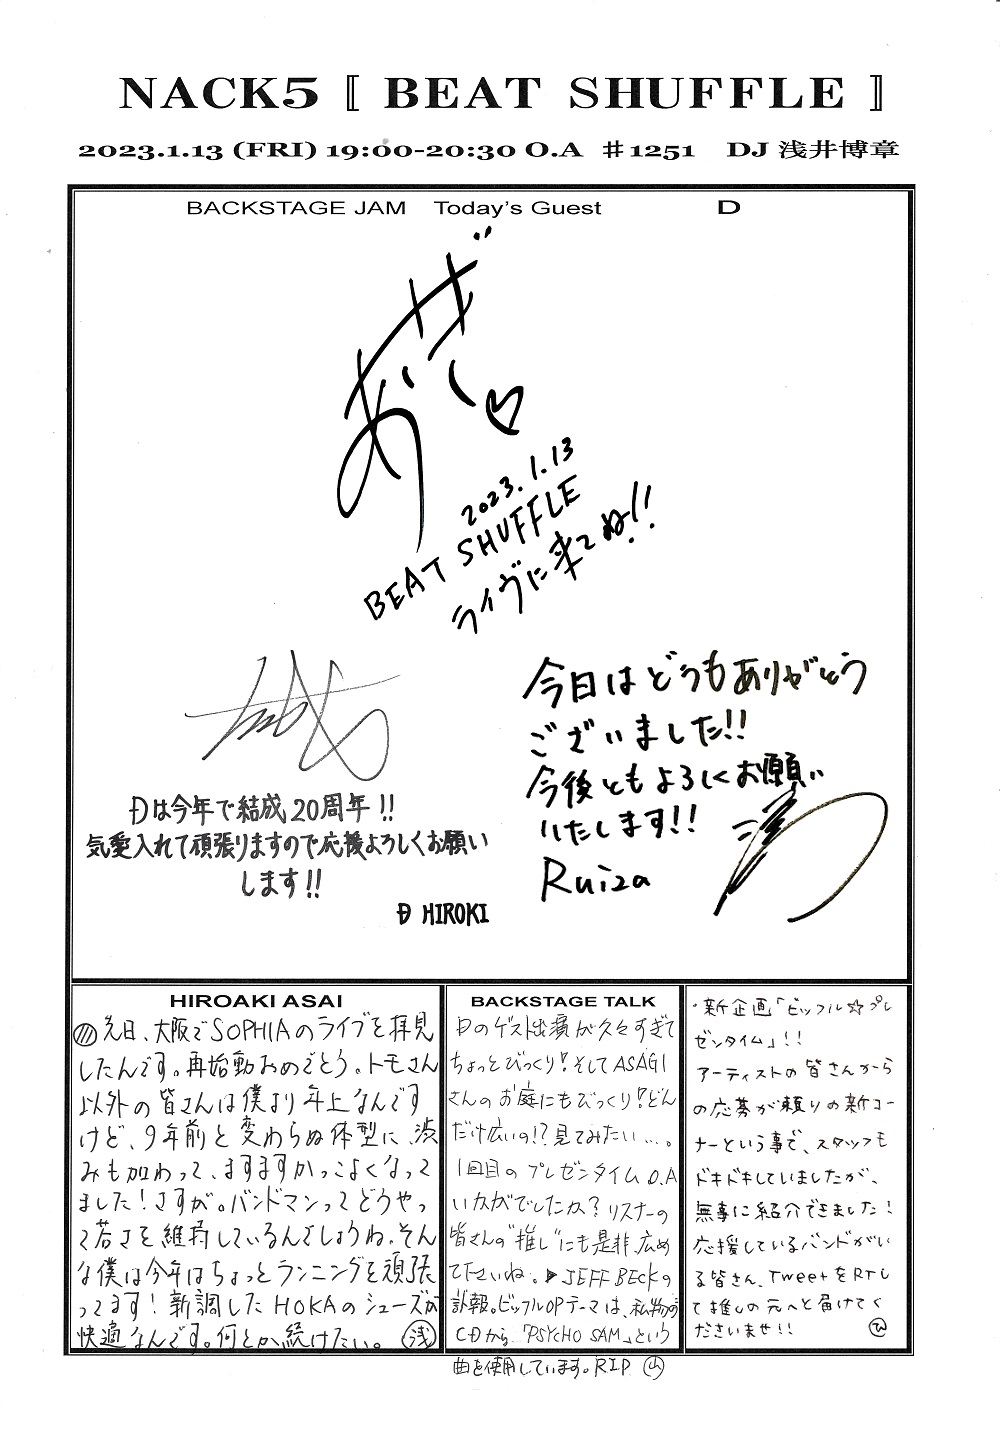 NACK5 〚 BEAT SHUFFLE 〛
2023.1.13 (FRI) 19:00-20:30 O.A ♯1251 DJ 浅井博章
BACKSTAGE JAM Today's Guest D
あさぎ♡
2023.1.13
BEAT SHUFFLE
ライヴに来てね!!
今日はどうもありがとう
ございました!!
今後ともよろしくお願い
いたします!!
Ruiza
Dは今年で結成20周年!!
気愛入れて頑張りますので応援よろしくお願い
します!!
D HIROKI
HIROAKI ASAI
先日、大阪でSOPHIAのライブを拝見
したんです。再始動おめでとう。トモさん
以外の皆さんは僕より年上なんです
けど、9年前と変わらぬ体型に、渋
みも加わって、ますますかっこよくなって
ました!さすが。バンドマンってどうやっ
て若さを維持しているんでしょうね。そん
な僕は今年はちょっとランニングを頑張
ってます!新調したHOKAのシューズが
快適なんです。何とか続けたい。(浅)
BACKSTAGE TALK
Dのゲスト出演が久々すぎて
ちょっとびっくり!そしてASAGI
さんのお庭にもびっくり!どん
だけ広いの!?見てみたい…。
1回目のプレゼンタイムO.A
いかがでしたか?リスナーの
皆さんの"推し"にも是非、広め
て下さいね。▶JEFF BECKの
訃報。ビッフルOPテーマは、私物の
CDから「PSYCHO SAM」という
曲を使用しています。R.I.P. (山)
・新企画「ビッフル☆プレ
ゼンタイム」!!
アーティストの皆さんから
の応募が頼りの新コー
ナーという事で、スタッフも
ドキドキしていましたが、
無事に紹介できました!
応援しているバンドがい
る皆さん、TweetをRTし
て推しの元へと届けてく
ださいませ!! (ひ)